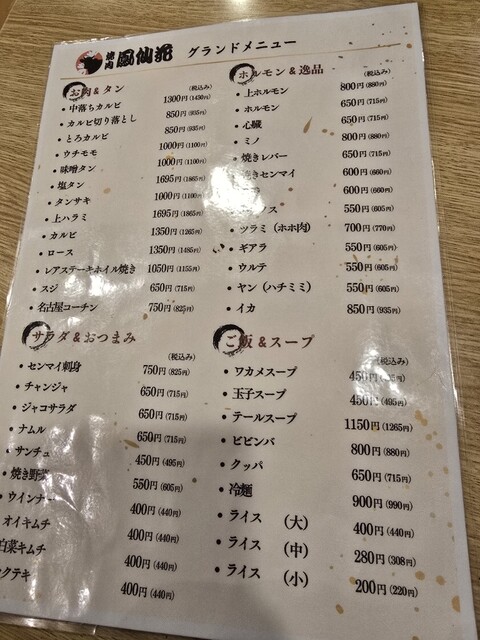 焼肉 鳳仙花 グランドメニュー
お肉 & タン (税込み)
・中落ちカルビ 1300円(1430円)
・カルビ切り落とし 850円(935円)
・とろカルビ 850円(935円)
・ウチモモ 1000円(1100円)
・味噌タン 1000円(1100円)
・塩タン 1695円(1865円)
・タンサキ 1000円(1100円)
・上ハラミ 1695円(1865円)
・カルビ 1350円(1265円)
・ロース 1350円(1485円)
・レアステーキホイル焼き 1050円(1155円)
・スジ 650円(715円)
・名古屋コーチン 750円(825円)
ホルモン & 逸品 (税込み)
・上ホルモン 800円(880円)
・ホルモン 650円(715円)
・心臓 650円(715円)
・ミノ 800円(880円)
・焼きレバー 650円(715円)
きセンマイ 600円(660円)
600円(660円)
ス 550円(605円)
・ツラミ(ホホ肉) 700円(770円)
・ギアラ 550円(605円)
・ウルテ 550円(605円)
・ヤン(ハチミミ) 550円(605円)
・イカ 850円(935円)
サラダ & おつまみ (税込み)
・センマイ刺身 750円(825円)
・チャンジャ 650円(715円)
・ジャコサラダ 650円(715円)
・ナムル 650円(715円)
・サンチュ 450円(495円)
・焼き野菜 550円(605円)
・ウインナー 400円(440円)
オイキムチ 400円(440円)
白菜キムチ 400円(440円)
クテキ 400円(440円)
ご飯 & スープ (税込み)
・ワカメスープ 450円
・玉子スープ 450円(495円)
・テールスープ 1150円(1265円)
・ビビンバ 800円(880円)
・クッパ 650円(715円)
・冷麺 900円(990円)
・ライス (大) 400円(440円)
・ライス (中) 280円(308円)
・ライス (小) 200円(220円)